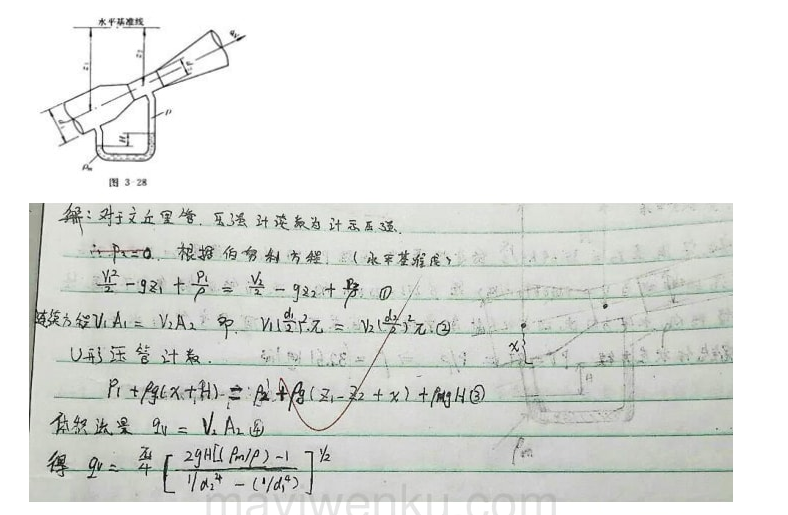 水平基准线
z₁
z₂
qv
d₂
d₁
ρ
H
ρm
图 3-28
解：对于文丘里管，压强计读数为计示压强.
∴ P₂=0. 根据伯努利方程 （水平基准线）
V₁²/2 - gz₁ + P₁/ρ = V₂/2 - gz₂ + P₂/ρ ①
连续方程V₁A₁ = V₂A₂ 即. V₁(d₁/2)²π = V₂(d₂/2)²π ②
U形压管计数.
P₁ + ρg(x+H) = P₂ + ρg(z₁-z₂+x) + ρmgH ③
体积流量 qv = V₂A₂ ④
得 qv = π/4 [ 2gH[(ρm/ρ)-1 / 1/d₂⁴ - (1/d₁⁴) ]^1/2
x
H
ρm
mayiwenku.com